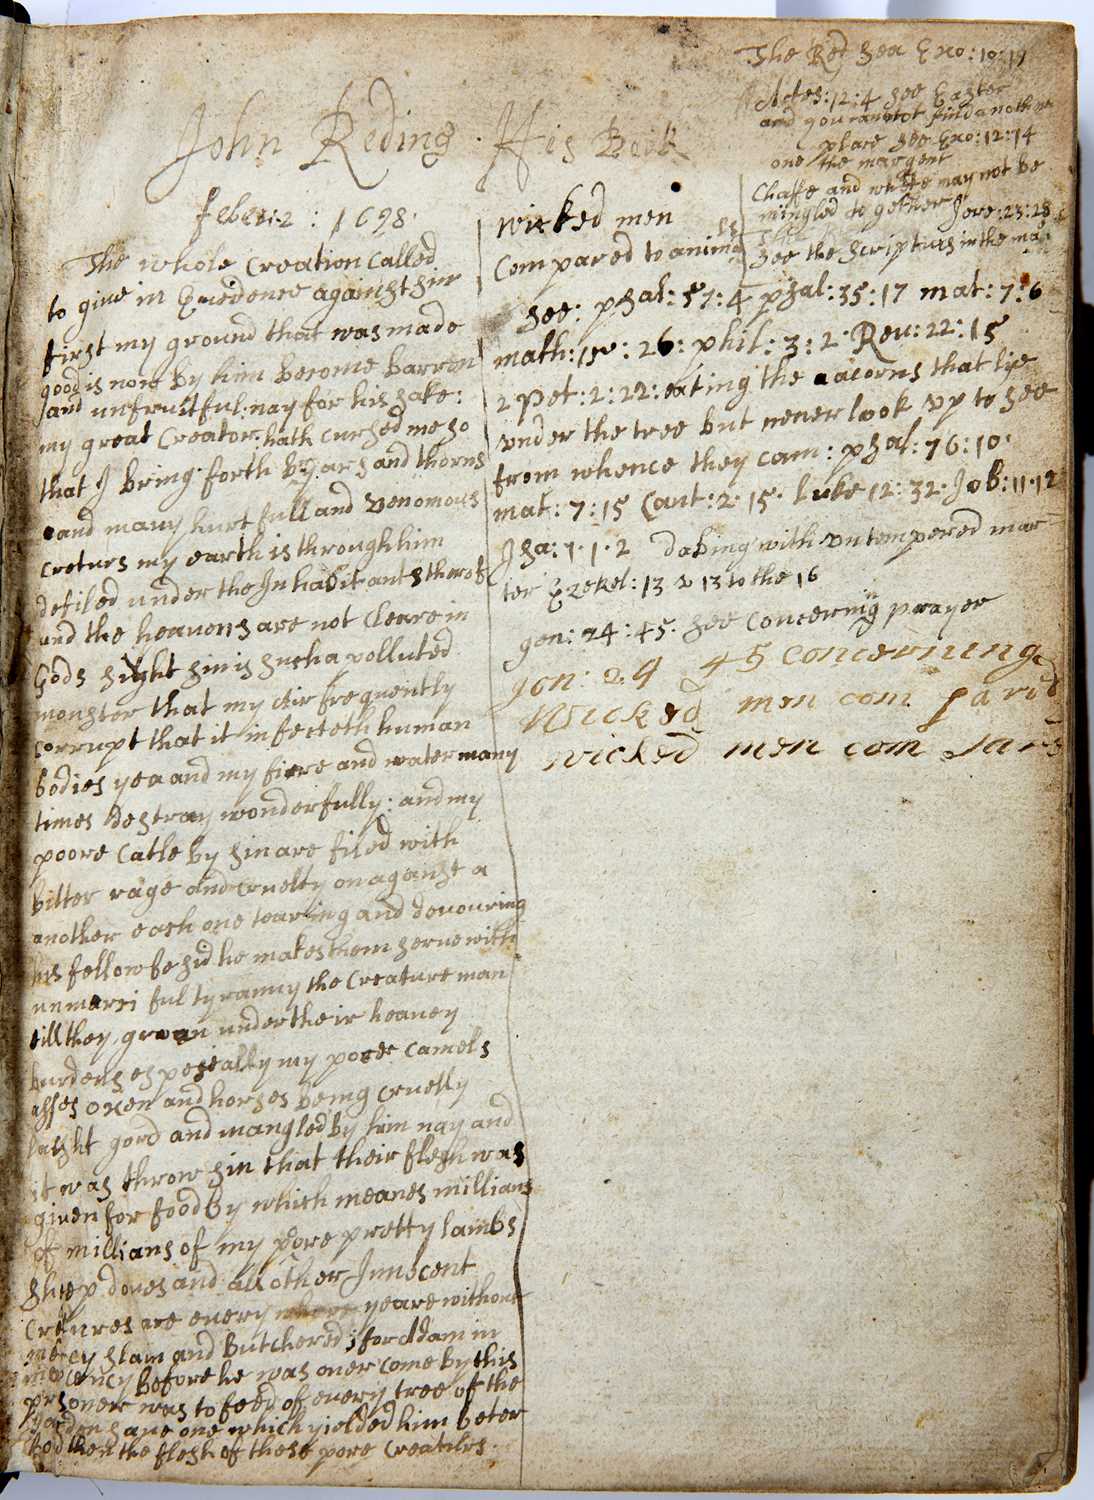 The Red Sea Exo: 10: 19
Actes: 12: 4 See Easter
and you cannot find another
place See Exo: 12: 14
one the margent
Chaffe and whete may not be
mingled to gether Jere: 23: 28
See the Scripturs in the mar
John Reding His Book
Feber: 2: 1698
The whole Creation Called
to give in Eveidence against sin
first my ground that was made
good is now by him become barren
and unfruitful: nay for his sake:
my great Creator hath cursed me so
that I bring forth Bryars and thorns
and many hurt full and venomous
creturs my earth is through him
defiled under the Inhabitants therof
and the heavens are not Cleare in
Gods sight sin is such a polluted
monster that my Air frequently
corrupt that it infecteth human
bodies yea and my fiere and water many
times destray wonderfully: and my
poore Catle by sin are filed with
bitter rage and cruelty on aganse a
another each one tearing and devouring
his fellow besid he makes them serve with
unmarsi ful tyranny the Creature man
till they groan under their heavey
burdens espesially my poore Camels
asses oxen and horses being cruelly
lasht gord and mangled by him nay and
it was throw sin that their flesh was
given for food by which meanes millians
of millians of my pore pretty lambs
Sheep doves and all other Innocent
Cretures are every yeare without
mercy slain and butchered; for Adam in
inocency before he was over come by this
prisoner was to feed of every tree of the
garden save one which yielded him beter
food then the flesh of these pore Creaturs.
wicked men
Compared to animals
See: psal: 57: 4 psal: 35: 17 mat: 7: 6
math: 15: 26: phil: 3: 2 Rev: 22: 15
2 Pet: 2: 22: eating the acorns that lye
under the tree but never look up to see
from whence they cam: psal: 76: 10:
mat: 7: 15 Cant: 2: 15 luke 12: 32 Job: 11: 12
Isa: 1: 1: 2 dabing with untempered mar
ter Ezekel: 13 v 13 to the 16
gen: 24: 45. See Concerning prayer
gen: 24 45 concerning
Wicked men com pared
wicked men com pare